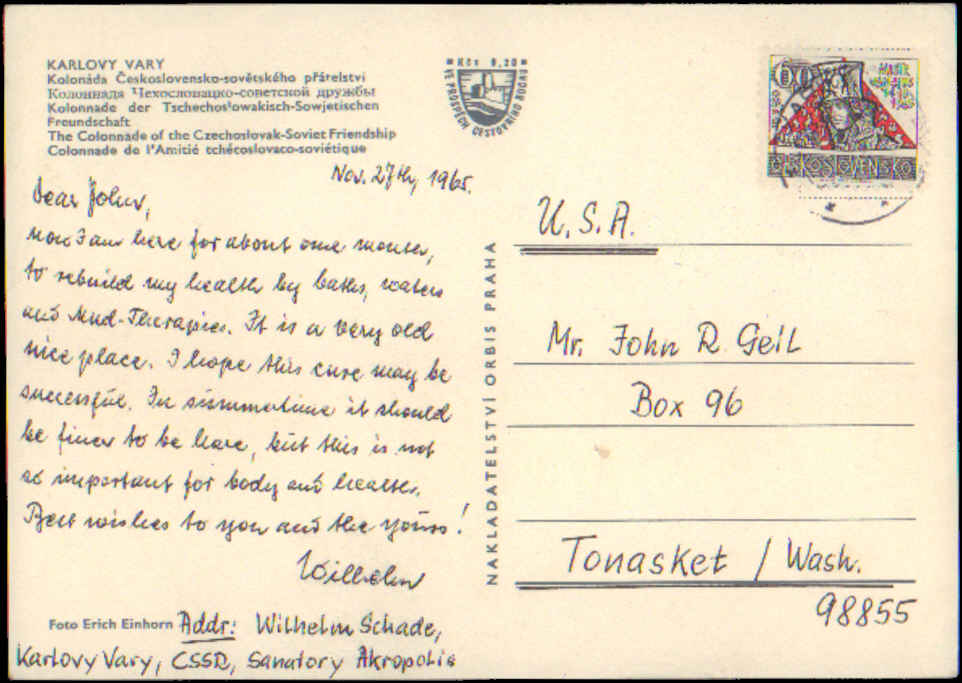 KARLOVY VARY
Kolonáda Československo-sovětského přátelství
Колоннада Чехословацко-советской дружбы
Kolonnade der Tschechoslowakisch-Sowjetischen
Freundschaft
The Colonnade of the Czechoslovak-Soviet Friendship
Colonnade de l'Amitié tchécoslovaco-soviétique
Kčs 0,20
VE PROSPĚCH CESTOVNÍHO RUCHU
ČESKOSLOVENSKO
Nov. 27th, 1965.
Dear John,
Now I am here for about one month,
to rebuild my health by baths, waters
and Mud-Therapies. It is a very old
nice place. I hope this cure may be
successful. In summertime it should
be finer to be here, but this is not
so important for body and health.
Best wishes to you and the yours!
Wilhelm
Foto Erich Einhorn Addr: Wilhelm Schade,
Karlovy Vary, ČSSR, Sanatory Akropolis
NAKLADATELSTVÍ ORBIS PRAHA
U.S.A.
Mr. John R. Geil
Box 96
Tonasket / Wash.
98855